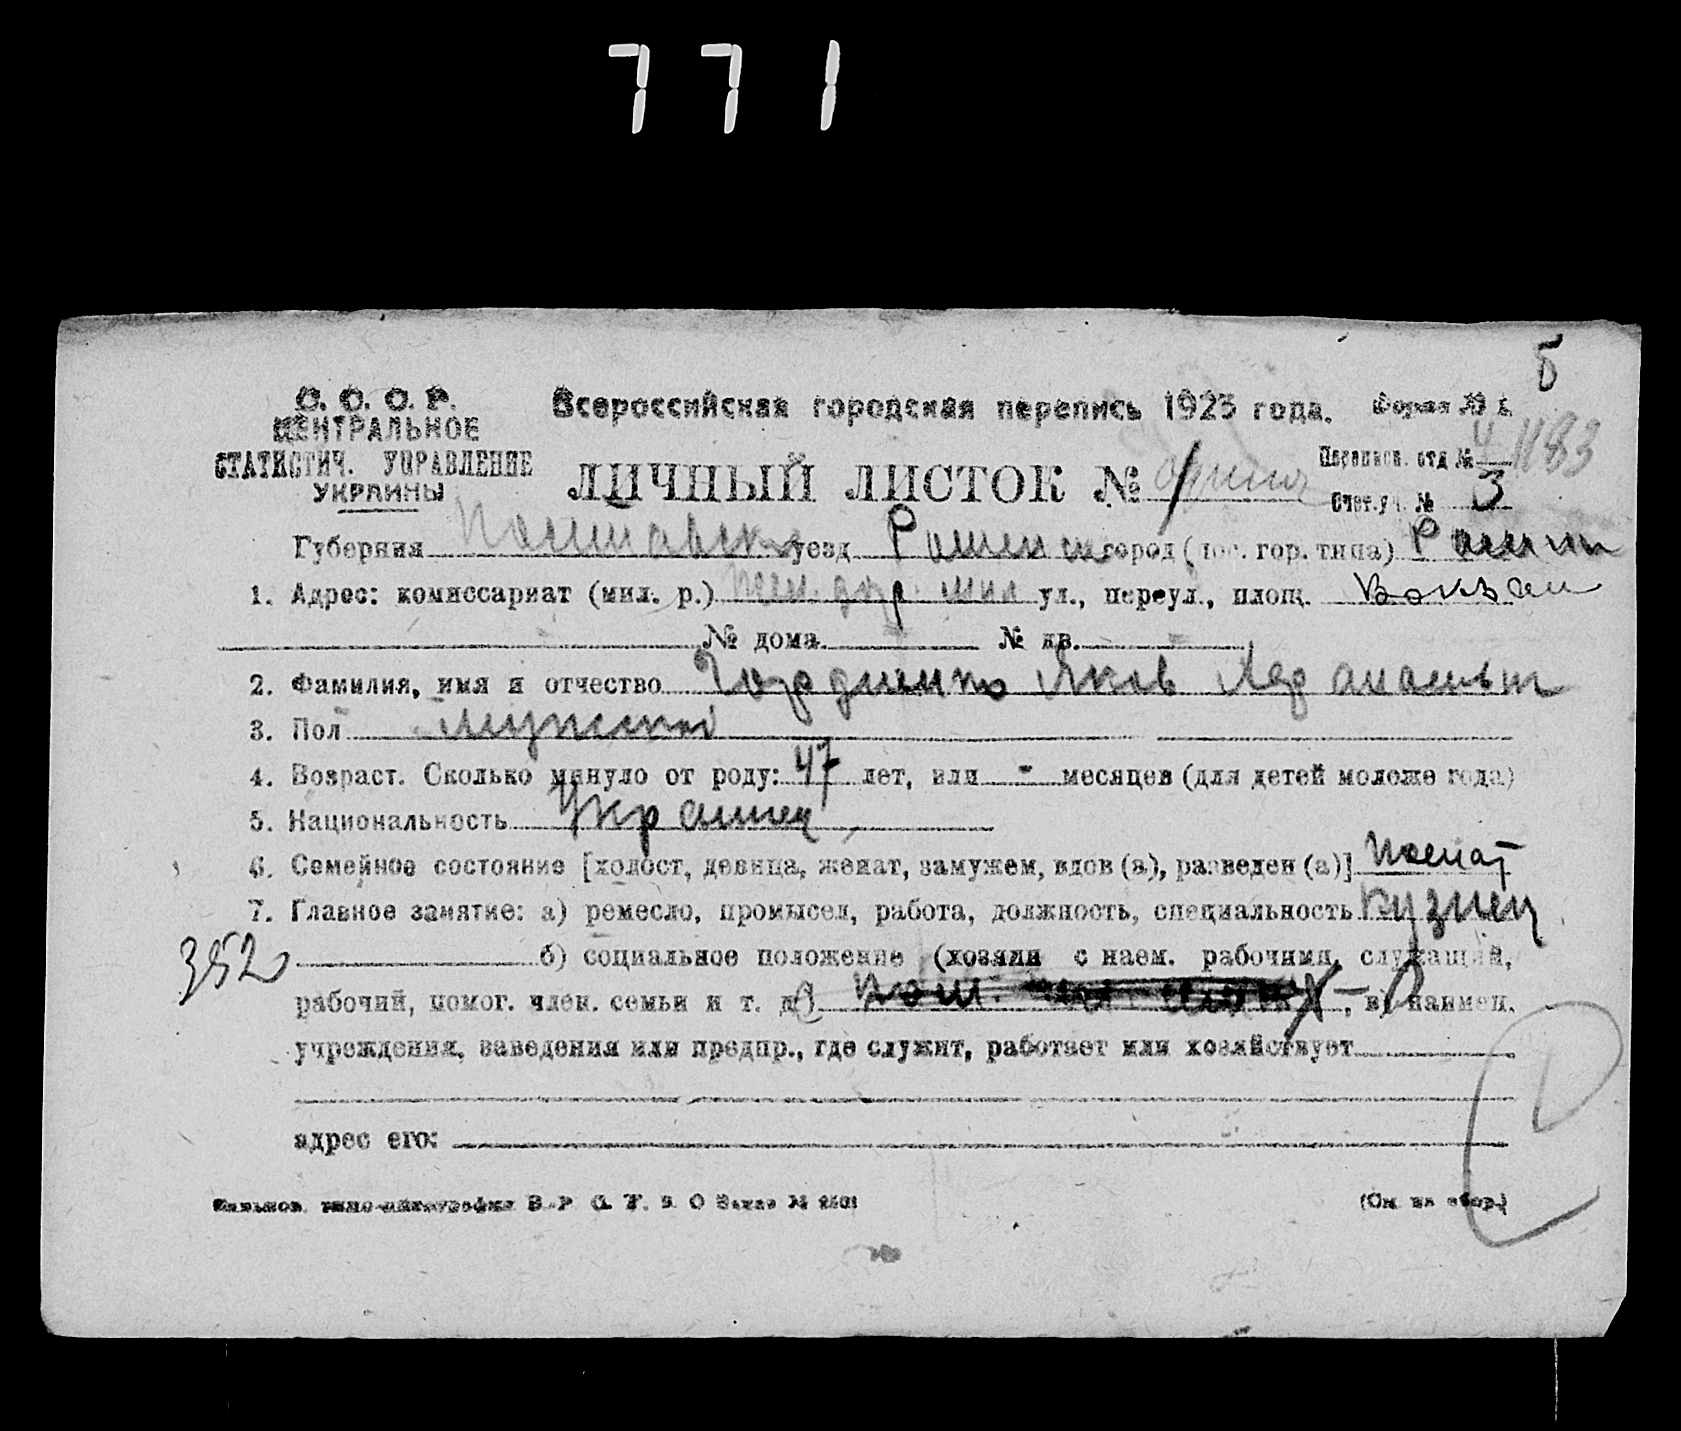 771
5
С. С. С. Р.
ЦЕНТРАЛЬНОЕ
СТАТИСТИЧ. УПРАВЛЕНИЕ
УКРАИНЫ
Всероссийская городская перепись 1923 года.
Форма № 1.
ЛИЧНЫЙ ЛИСТОК № 1
Переписн. отд № 4 1183
Счет. уч. № 3
Губерния Полтавск уезд Роменск город (пос. гор. типа) Ромны
1. Адрес: комиссариат (мил. р.) ул., переул., площ. Вокзал
№ дома № кв.
2. Фамилия, имя и отчество Гордиенко Яков
3. Пол мужской
4. Возраст. Сколько минуло от роду: 47 лет, или - месяцев (для детей моложе года)
5. Национальность Украинец
6. Семейное состояние [холост, девица, женат, замужем, вдов (а), разведен (а)] женат
7. Главное занятие: а) ремесло, промысел, работа, должность, специальность Кузнец
352 б) социальное положение (хозяин с наем. рабочими, служащий,
рабочий, помог. член. семьи и т. д.) Р, в) наимен.
учреждения, заведения или предпр., где служит, работает или хозяйствует
адрес его:
(См. на обор.)